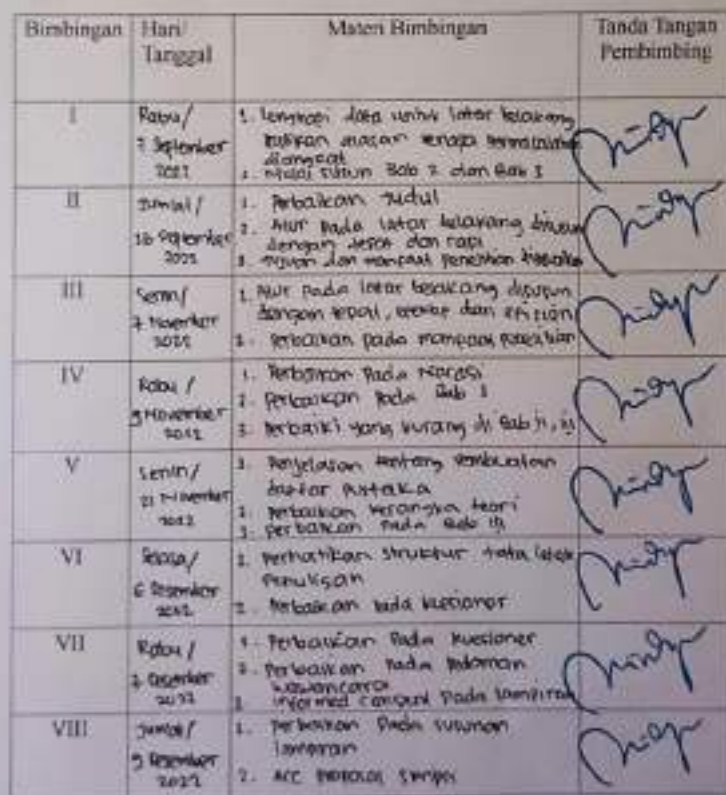 Bimbingan
Hari/
Tanggal
Materi Bimbingan
Tanda Tangan
Pembimbing
I
Rabu/
7 September
2022
1. lengkapi data untuk latar belakang
masalah
diangkat
2. Mulai susun Bab 2 dan Bab 3
II
Jumlat/
16 September
2022
1. Perbaikan Judul
2. Alur pada latar belakang disusun
dengan tepat dan rapi
3. Tujuan dan manfaat penelitian
III
Senin/
7 November
2022
1. Alur pada latar belakang disusun
dengan tepat, dan
2. Perbaikan pada manfaat penelitian
IV
Rabu /
9 November
2022
1. Perbaikan Pada Narasi
2. Perbaikan Pada Bab
3. Perbaiki yang kurang di Bab
V
Senin/
21 November
2022
1. Penjelasan tentang pembuatan
daftar Pustaka
2. perbaikan kerangka teori
3. perbaikan Pada Bab III
VI
Selasa/
6 Desember
2022
1. Perhatikan struktur tata letak
Penulisan
2. Perbaikan pada kuesioner
VII
Rabu /
7 Desember
2022
1. Perbaikan Pada Kuesioner
2. Perbaikan Pada Pedoman
wawancara
3. informed consent Pada lampiran
VIII
Jumat/
9 Desember
2022
1. Perbaikan Pada susunan
lampiran
2. ACC proposal skripsi